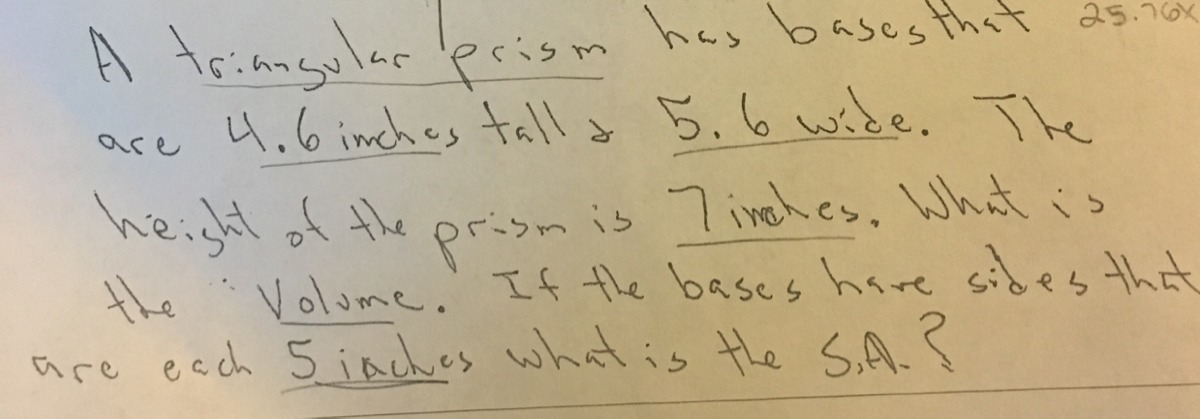 A triangular prism has bases that 25.76x
are 4.6 inches tall & 5.6 wide. The
height of the prism is 7 inches. What is
the Volume. If the bases have sides that
are each 5 inches what is the S.A.?